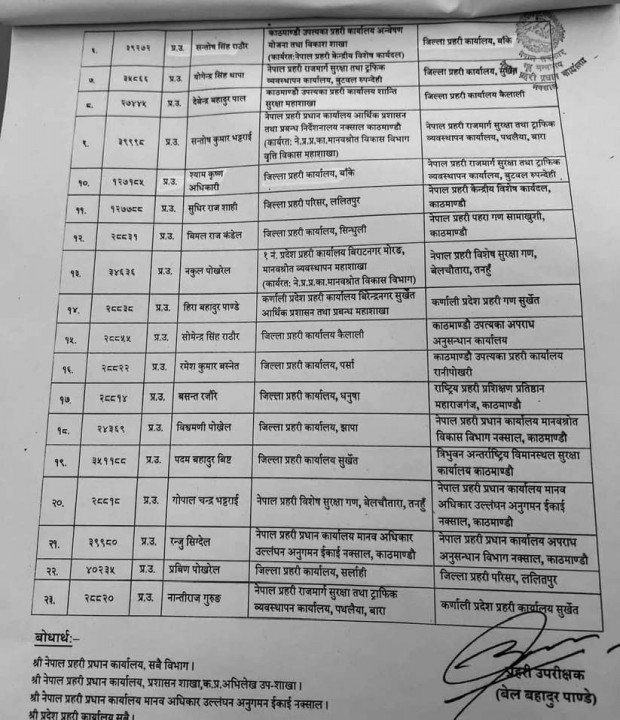 काठमाण्डौ उपत्यका प्रहरी कार्यालय अन्वेषण
६. ३९२७२ प्र.उ. सन्तोष सिंह राठौर योजना तथा विकाश शाखा जिल्ला प्रहरी कार्यालय, बाँके
(कार्यरत:नेपाल प्रहरी केन्द्रिय विशेष कार्यदल)
७. ३५८६६ प्र.उ. योगेन्द्र सिंह थापा नेपाल प्रहरी राजमार्ग सुरक्षा तथा ट्राफिक जिल्ला प्रहरी कार्यालय, सुर्खेत
व्यवस्थापन कार्यालय, बुटवल रुपन्देही
८. २७४४५ प्र.उ. देबेन्द्र बहादुर पाल काठमाण्डौ उपत्यका प्रहरी कार्यालय शान्ति जिल्ला प्रहरी कार्यालय कैलाली
सुरक्षा महाशाखा
नेपाल प्रहरी प्रधान कार्यालय आर्थिक प्रशासन
९. ३९९९८ प्र.उ. सन्तोष कुमार भट्टराई तथा प्रबन्ध निर्देशनालय नक्साल काठमाण्डौ नेपाल प्रहरी राजमार्ग सुरक्षा तथा ट्राफिक
(कार्यरत: ने.प्र.प्र.का.मानवस्रोत विकास विभाग व्यवस्थापन कार्यालय, पथलैया, बारा
वृत्ति विकास महाशाखा)
१०. १२७१८५ प्र.उ. श्याम कृष्ण जिल्ला प्रहरी कार्यालय, बाँके नेपाल प्रहरी राजमार्ग सुरक्षा तथा ट्राफिक
अधिकारी व्यवस्थापन कार्यालय, बुटवल रुपन्देही
११. १२७७८८ प्र.उ. सुधिर राज शाही जिल्ला प्रहरी परिसर, ललितपुर नेपाल प्रहरी केन्द्रीय विशेष कार्यदल,
काठमाण्डौ
१२. २८८३१ प्र.उ. बिमल राज कंडेल जिल्ला प्रहरी कार्यालय, सिन्धुली नेपाल प्रहरी पहरा गण सामाखुशी,
काठमाण्डौ
१ नं. प्रदेश प्रहरी कार्यालय बिराटनगर मोरङ,
१३. ३४६३६ प्र.उ. नकुल पोखरेल मानवश्रोत व्यवस्थापन महाशाखा नेपाल प्रहरी विशेष सुरक्षा गण,
(कार्यरत: ने.प्र.प्र.का.मानवश्रोत विकास विभाग) बेलचौतारा, तनहुँ
१४. २८८३८ प्र.उ. हिरा बहादुर पाण्डे कर्णाली प्रदेश प्रहरी कार्यालय बिरेन्द्रनगर सुर्खेत कर्णाली प्रदेश प्रहरी गण सुर्खेत
आर्थिक प्रशासन तथा प्रबन्ध महाशाखा
१५. २८८५५ प्र.उ. सोमेन्द्र सिंह राठौर जिल्ला प्रहरी कार्यालय कैलाली काठमाण्डौ उपत्यका अपराध
अनुसन्धान कार्यालय
१६. २८८२२ प्र.उ. रमेश कुमार बस्नेत जिल्ला प्रहरी कार्यालय, पर्सा काठमाण्डौ उपत्यका प्रहरी कार्यालय
रानीपोखरी
१७. २८८१४ प्र.उ. बसन्त रजौरे जिल्ला प्रहरी कार्यालय, धनुषा राष्ट्रिय प्रहरी प्रशिक्षण प्रतिष्ठान
महाराजगंज, काठमाण्डौ
१८. २४३६९ प्र.उ. विश्वमणी पोख्रेल जिल्ला प्रहरी कार्यालय, झापा नेपाल प्रहरी प्रधान कार्यालय मानवश्रोत
विकास विभाग नक्साल, काठमाण्डौ
१९. ३५११८८ प्र.उ. पदम बहादुर बिष्ट जिल्ला प्रहरी कार्यालय सुर्खेत त्रिभुवन अन्तर्राष्ट्रिय विमानस्थल सुरक्षा
कार्यालय काठमाण्डौ
२०. २८८१८ प्र.उ. गोपाल चन्द्र भट्टराई नेपाल प्रहरी विशेष सुरक्षा गण, बेलचौतारा, तनहुँ नेपाल प्रहरी प्रधान कार्यालय मानव
अधिकार उल्लंघन अनुगमन ईकाई
नक्साल, काठमाण्डौ
२१. ३९९८० प्र.उ. रन्जु सिग्देल नेपाल प्रहरी प्रधान कार्यालय मानव अधिकार नेपाल प्रहरी प्रधान कार्यालय अपराध
उल्लंघन अनुगमन ईकाई नक्साल, काठमाण्डौ अनुसन्धान विभाग नक्साल, काठमाण्डौ
२२. ४०२३५ प्र.उ. प्रबिण पोखरेल जिल्ला प्रहरी कार्यालय, सर्लाही जिल्ला प्रहरी परिसर, ललितपुर
२३. २८८२० प्र.उ. नान्तीराज गुरुङ नेपाल प्रहरी राजमार्ग सुरक्षा तथा ट्राफिक कर्णाली प्रदेश प्रहरी कार्यालय सुर्खेत
व्यवस्थापन कार्यालय, पथलैया, बारा
बोधार्थ:–
श्री नेपाल प्रहरी प्रधान कार्यालय, सबै विभाग।
श्री नेपाल प्रहरी प्रधान कार्यालय, प्रशासन शाखा,क.प्र.अभिलेख उप-शाखा।
श्री नेपाल प्रहरी प्रधान कार्यालय मानव अधिकार उल्लंघन अनुगमन ईकाई नक्साल।
श्री प्रदेश प्रहरी कार्यालय सबै।
प्रहरी उपरीक्षक
(बेल बहादुर पाण्डे)